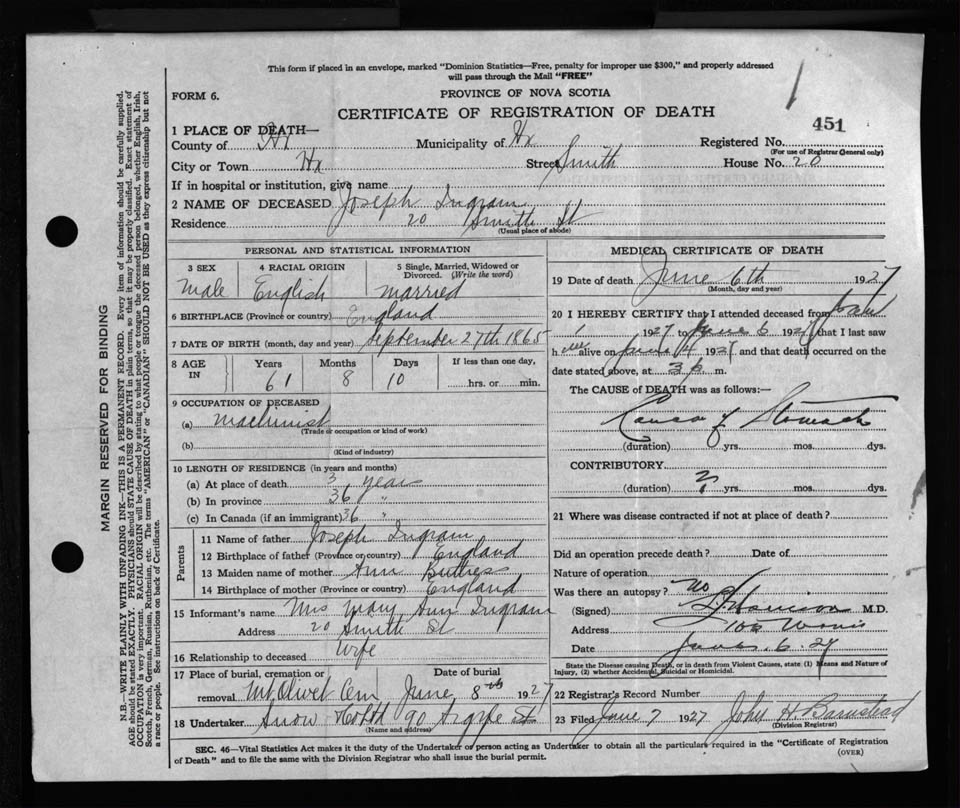 This form if placed in an envelope, marked "Dominion Statistics—Free, penalty for improper use $300," and properly addressed
will pass through the Mail "FREE"
FORM 6.
PROVINCE OF NOVA SCOTIA
CERTIFICATE OF REGISTRATION OF DEATH
1
451
1 PLACE OF DEATH—
County of Hx Municipality of Hx Registered No.
(For use of Registrar General only)
City or Town Hx Street Smith House No. 20
If in hospital or institution, give name
2 NAME OF DECEASED Joseph Ingram
Residence 20 Smith St
(Usual place of abode)
PERSONAL AND STATISTICAL INFORMATION
3 SEX 4 RACIAL ORIGIN 5 Single, Married, Widowed or Divorced. (Write the word)
Male English Married
6 BIRTHPLACE (Province or country) England
7 DATE OF BIRTH (month, day and year) September 27th 1865
8 AGE IN Years Months Days If less than one day,
61 8 10 hrs. or min.
9 OCCUPATION OF DECEASED
(a) Machinist
(Trade or occupation or kind of work)
(b)
(Kind of industry)
10 LENGTH OF RESIDENCE (in years and months)
(a) At place of death 3 years
(b) In province 36 "
(c) In Canada (if an immigrant) 36 "
Parents
11 Name of father Joseph Ingram
12 Birthplace of father (Province or country) England
13 Maiden name of mother Ann
14 Birthplace of mother (Province or country) England
15 Informant's name Mrs Mary Ann Ingram
Address 20 Smith St
16 Relationship to deceased Wife
17 Place of burial, cremation or Date of burial
removal Mt Olivet Cem June 8th 1927
18 Undertaker Snow & Co Ltd 90 Argyle St
(Name and address)
MEDICAL CERTIFICATE OF DEATH
19 Date of death June 6th 1927
(Month, day and year)
20 I HEREBY CERTIFY that I attended deceased from
1927 to June 6 1927 that I last saw
h im alive on June 4 1927 and that death occurred on
date stated above, at 3 p m.
The CAUSE of DEATH was as follows:—
Cancer of Stomach
(duration) yrs. mos. dys.
CONTRIBUTORY
(duration) ? yrs. mos. dys.
21 Where was disease contracted if not at place of death?
Did an operation precede death? Date of
Nature of operation
Was there an autopsy? No
(Signed) M.D.
Address
Date June 6. 27
State the Disease causing Death, or in death from Violent Causes, state (1) Means and Nature of
Injury, (2) whether Accidental, Suicidal or Homicidal.
22 Registrar's Record Number
23 Filed June 7 1927 John H. Barnstead
(Division Registrar)
SEC. 46—Vital Statistics Act makes it the duty of the Undertaker or person acting as Undertaker to obtain all the particulars required in the "Certificate of Registration
of Death" and to file the same with the Division Registrar who shall issue the burial permit.
(OVER)
MARGIN RESERVED FOR BINDING
N.B.—WRITE PLAINLY WITH UNFADING INK—THIS IS A PERMANENT RECORD. Every item of information should be carefully supplied.
AGE should be stated EXACTLY. PHYSICIANS should STATE CAUSE OF DEATH in plain terms, so that it may be properly classified. Exact statement of
OCCUPATION is very important. RACIAL ORIGIN will be described by stating to what people or tongue the deceased person belonged, whether English, Irish,
Scotch, French, German, Russian, Ruthenian, etc. The terms "AMERICAN" or "CANADIAN" SHOULD NOT BE USED as they express citizenship but not
a race or people. See instructions on back of Certificate.